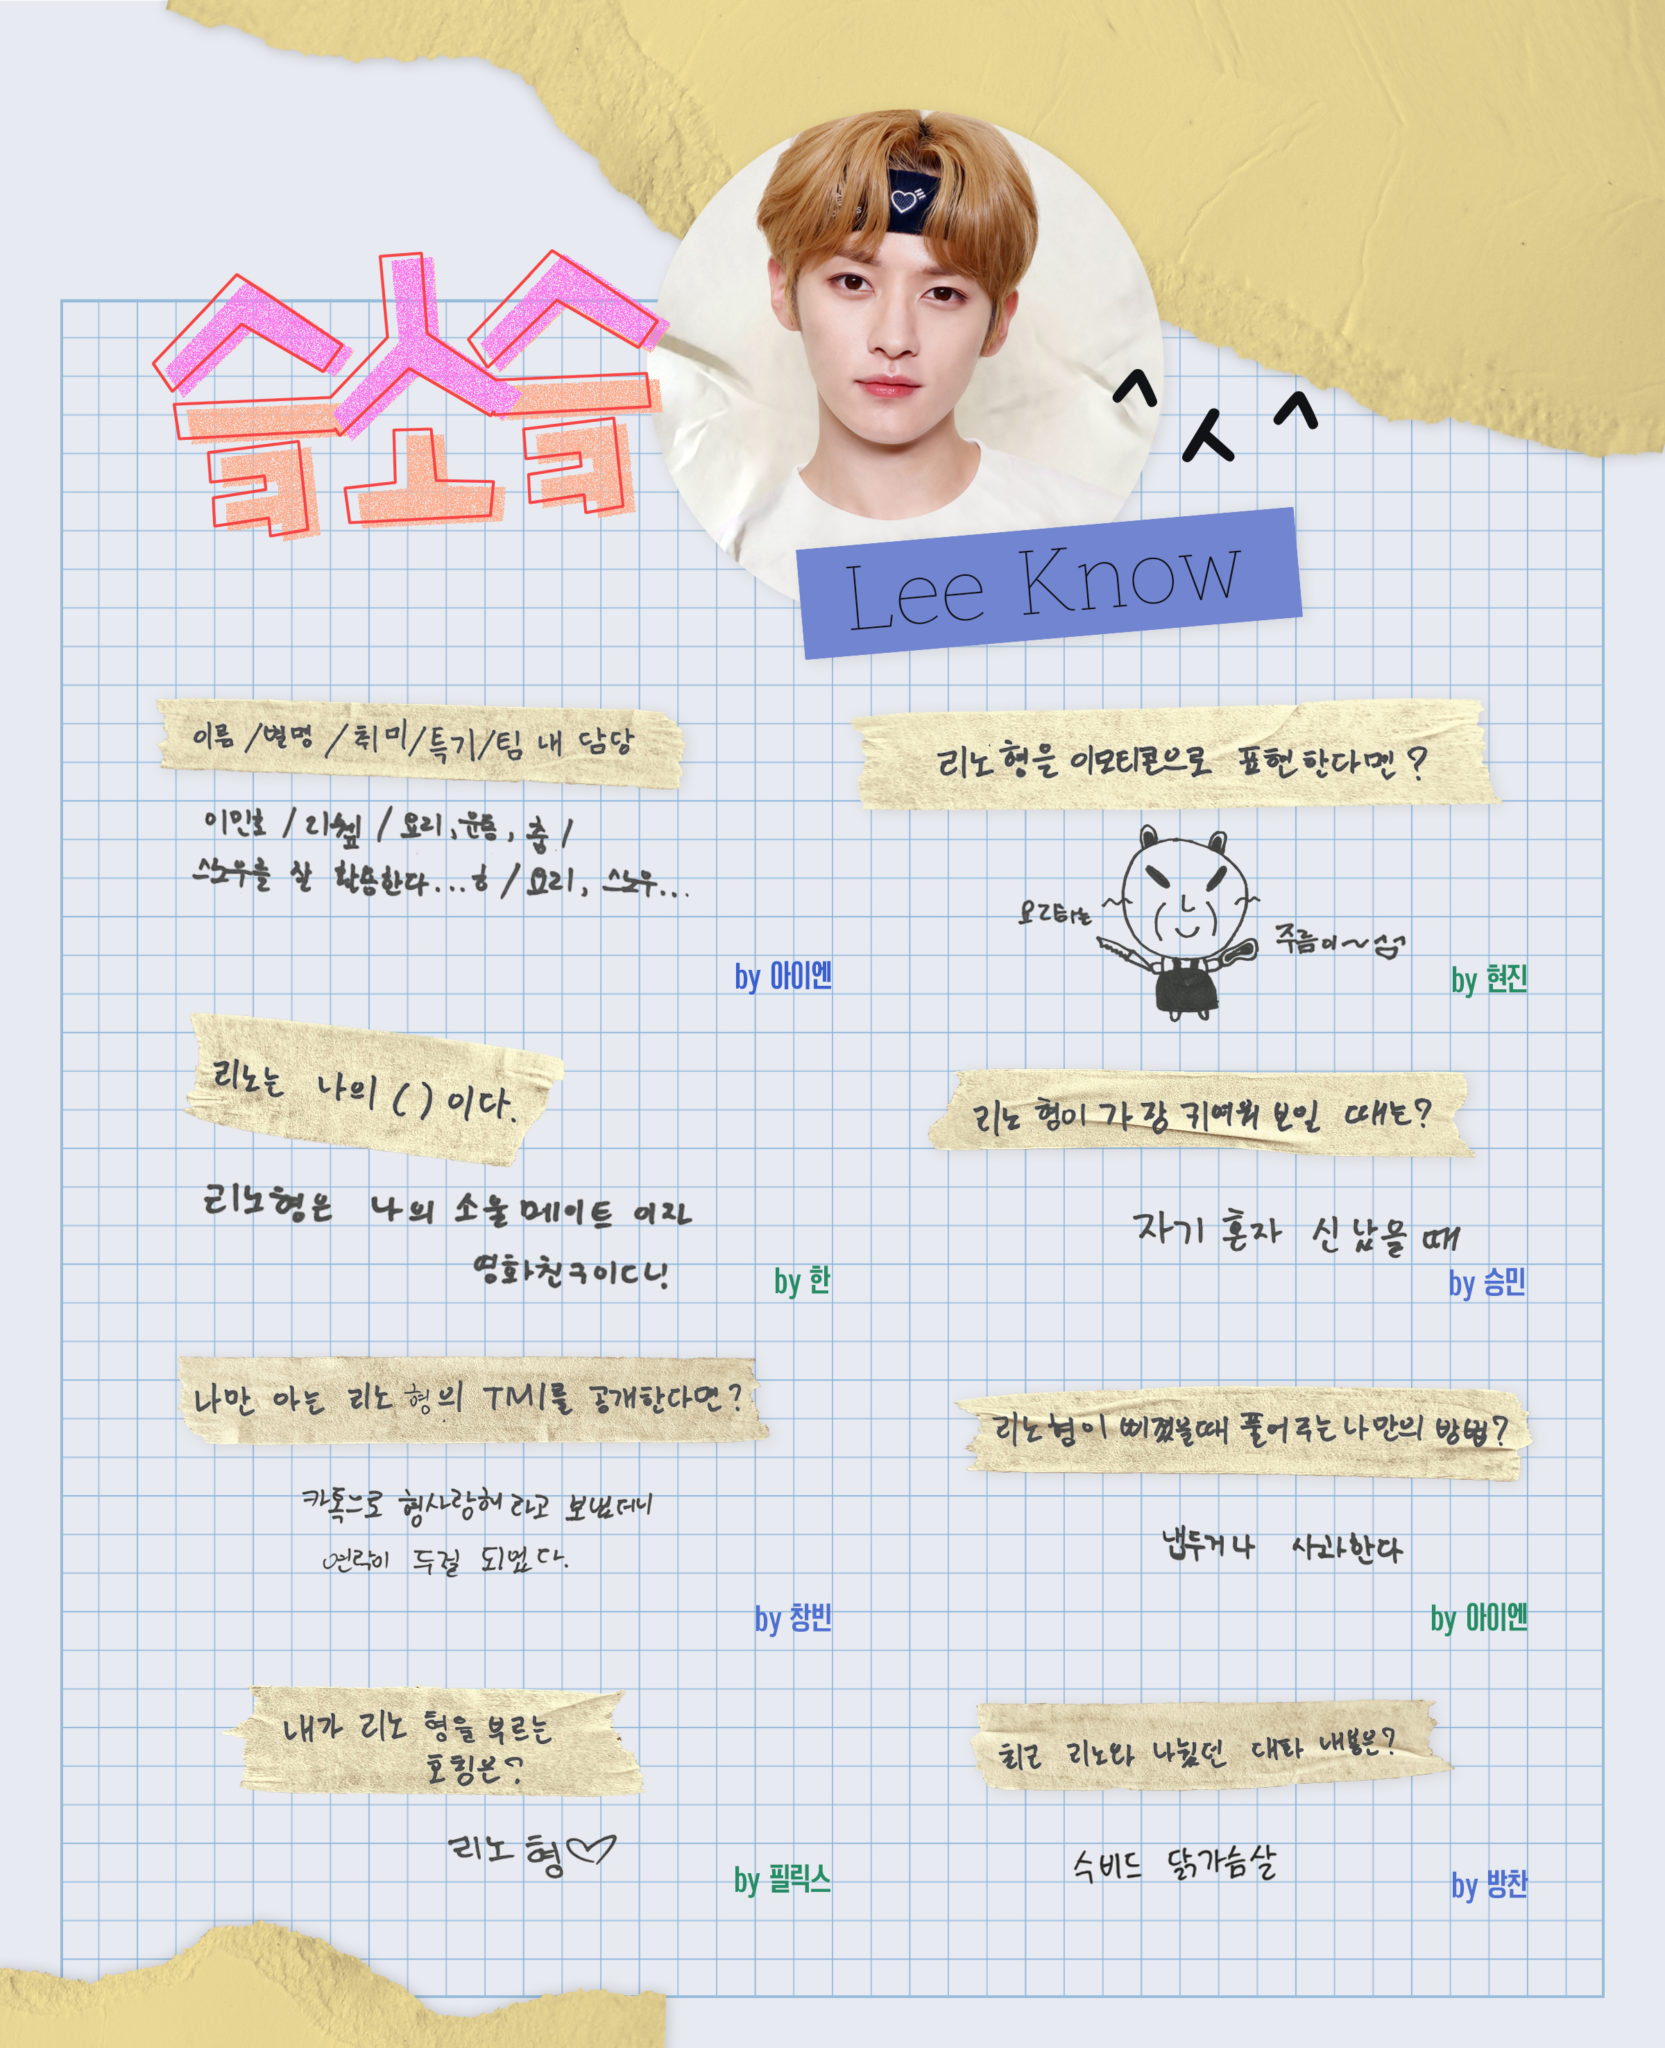 슴스슴
^ㅅ^
Lee Know
이름/별명/취미/특기/팀 내 담당
이민호/리쉪/요리,운동,춤/
스노우를 잘 활용한다...ㅎ/요리, 스노우...
by 아이엔
리노 형을 이모티콘으로 표현한다면?
요리하는
주름이~섬
by 현진
리노는 나의 ( )이다.
리노형은 나의 소울메이트 이자
영화친구이다!
by 한
리노 형이 가장 귀여워 보일 때는?
자기 혼자 신났을 때
by 승민
나만 아는 리노 형의 TMI를 공개한다면?
카톡으로 형사랑해 라고 보냈더니
연락이 두절 되었다.
by 창빈
리노형이 삐졌을때 풀어주는 나만의 방법?
냅두거나 사과한다
by 아이엔
내가 리노 형을 부르는
호칭은?
리노 형♡
by 필릭스
최근 리노와 나눴던 대화 내용은?
수비드 닭가슴살
by 방찬